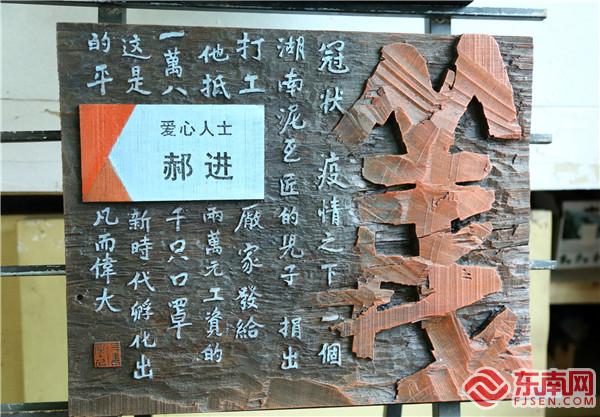 美
冠状 疫情之下一個
湖南泥瓦匠的兒子 捐出
打工 廠家發給
他抵 兩萬元工資的
一萬八千只口罩
這是新時代孵化出
的平凡而偉大
爱心人士
郝进
东南网
FJSEN.COM